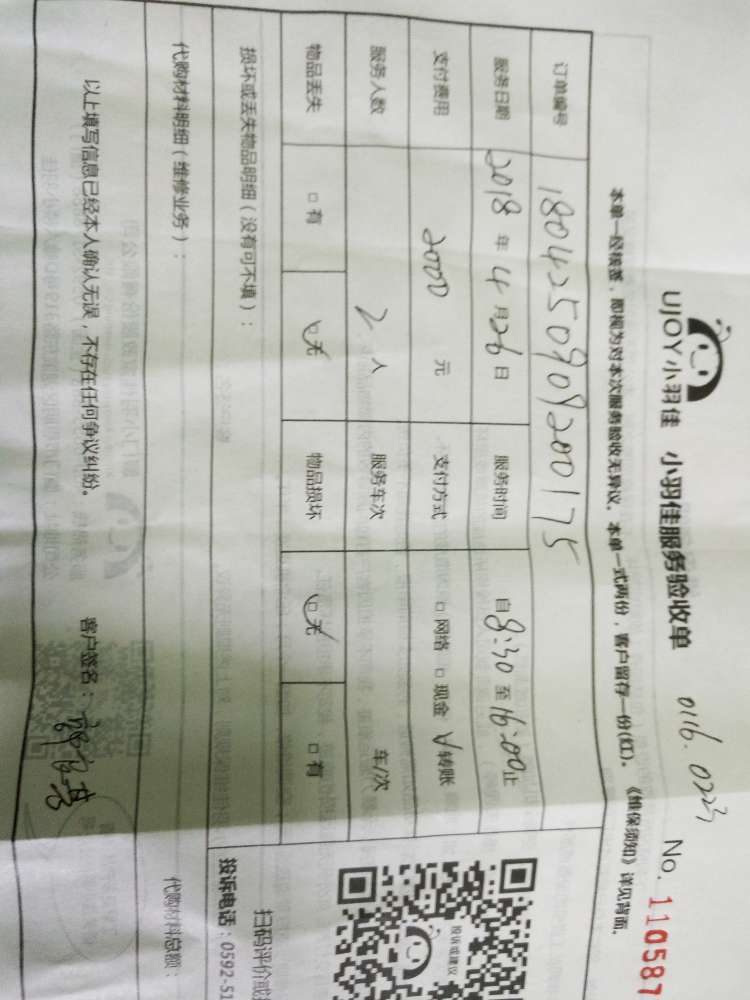 UJOY小羽佳 小羽佳服务验收单 0116.0223 No.110587
本单一经核签，即视为对本次服务验收无异议。本单一式两份，客户留存一份(红)。《维保须知》详见背面。
订单编号 180425090920017 5
服务日期 2018年4月26日 服务时间 自8:30至16:00止
支付费用 2000元 支付方式 □网络 □现金 ☑转账
服务人数 2人 服务车次 车/次
物品丢失 □有 ☑无 物品损坏 ☑无 □有
损坏或丢失物品明细（没有可不填）：
代购材料明细（维修业务）： 代购材料总额：
以上填写信息已经本人确认无误，不存在任何争议纠纷。 客户签名：
投诉或建议
扫码评价或
投诉电话：0592-51